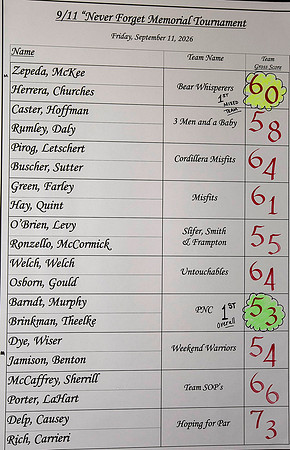 9/11 "Never Forget Memorial Tournament
Friday, September 11, 2026
Name Team Name Team Gross Score
Zepeda, McKee
Herrera, Churches Bear Whisperers 1ST MIXED TEAM 60
Caster, Hoffman
Rumley, Daly 3 Men and a Baby 58
Pirog, Letschert
Buscher, Sutter Cordillera Misfits 64
Green, Farley
Hay, Quint Misfits 61
O'Brien, Levy
Ronzello, McCormick Slifer, Smith & Frampton 55
Welch, Welch
Osborn, Gould Untouchables 64
Barndt, Murphy
Brinkman, Theelke PNC 1ST Overall 53
Dye, Wiser
Jamison, Benton Weekend Warriors 54
McCaffrey, Sherrill
Porter, LaHart Team SOP's 66
Delp, Causey
Rich, Carrieri Hoping for Par 73